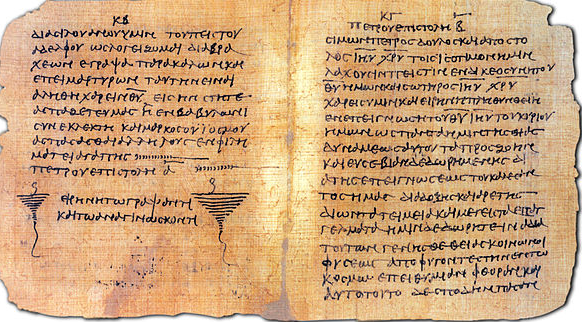 ΚΒ
ΔΙΑ ϹΙΛΟΥΑΝΟΥ ΥΜΙΝ ΤΟΥ ΠΕΙϹΤΟΥ
ΑΔΕΛΦΟΥ ΩϹ ΛΟΓΕΙΖΟΜΑΙ ΔΙΑ ΒΡΑ
ΧΕΩΝ ΕΓΡΑΨΑ ΠΑΡΑΚΑΛΩΝ ΚΑΙ
ΕΠΕΙΜΑΡΤΥΡΩΝ ΤΑΥΤΗΝ ΕΙΝΑΙ
ΑΛΗΘΗ ΧΑΡΕΙΝ ΘΥ ΕΙϹ ΗΝ ϹΤΗΤΕ
ΑϹΠΑΖΕΤΕ ΥΜΑϹ Η ΕΝ ΒΑΒΥΛΩΝΙ
ϹΥΝΕΚΛΕΚΤΗ ΚΑΙ ΜΑΡΚΟϹ Ο ΥΙΟϹ ΜΟΥ
ΑϹΠΑϹΑϹΘΕ ΑΛΛΗΛΟΥϹ ΕΝ ΦΙΛΗ
ΜΑΤΕΙ ΑΓΑΠΗϹ
ΠΕΤΡΟΥ ΕΠΙϹΤΟΛΗ Α
ΕΙΡΗΝΗ ΤΩ ΓΡΑΨΑΝΤΙ
ΚΑΙ ΤΩ ΑΝΑΓΙΝΩϹΚΟΝΤΙ
ΚΓ
ΠΕΤΡΟΥ ΕΠΙϹΤΟΛΗ Β
ϹΙΜΩΝ ΠΕΤΡΟϹ ΔΟΥΛΟϹ ΚΑΙ ΑΠΟϹΤΟ
ΛΟϹ ΙΗΥ ΧΡΥ ΤΟΙϹ ΙϹΟΤΙΜΟΝ ΗΜΙΝ
ΛΑΧΟΥϹΙΝ ΠΕΙϹΤΙΝ ΕΝ ΔΙΚΕΟϹΥΝΗ ΤΟΥ
ΘΥ ΗΜΩΝ ΚΑΙ ϹΩΤΗΡΟϹ ΙΗΥ ΧΡΥ
ΧΑΡΕΙϹ ΥΜΙΝ ΚΑΙ ΕΙΡΗΝΗ ΠΛΗΘΥΝΘΕΙΗ
ΕΝ ΕΠΕΙΓΝΩϹΙ ΤΟΥ ΘΥ ΙΗΥ ΤΟΥ ΚΥΡΙΟΥ
ΗΜΩΝ ΩϹ ΠΑΝΤΑ ΗΜΙΝ ΤΗϹ ΘΙΑϹ
ΔΥΝΑΜΕΩϹ ΑΥΤΟΥ ΤΑ ΠΡΟϹ ΖΩΗΝ
ΚΑΙ ΕΥϹΕΒΙΑΝ ΔΕΔΩΡΗΜΕΝΗϹ ΔΙ
Α ΤΗϹ ΕΠΕΙΓΝΩϹΕΩϹ ΤΟΥ ΚΑΛΕϹΑΝ
ΤΟϹ ΗΜΑϹ ΔΙΑ ΔΟΞΗϹ ΚΑΙ ΑΡΕΤΗϹ
ΔΙ ΩΝ ΤΑ ΤΕΙΜΕΙΑ ΚΑΙ ΜΕΓΕΙϹΤΑ ΕΠΑΓ
ΓΕΛΜΑΤΑ ΗΜΙΝ ΔΕΔΩΡΗΤΕ ΕΙΝΑ ΔΙΑ
ΤΟΥΤΩΝ ΓΕΝΗϹΘΕ ΘΕΙΑϹ ΚΟΙΝΩΝΟΙ
ΦΥϹΕΩϹ ΑΠΟΦΥΓΟΝΤΕϹ ΤΗΝ ΕΝ ΤΩ
ΚΟϹΜΩ ΕΠΕΙΘΥΜΙΑΝ ΦΘΟΡΑϹ ΚΑΙ
ΑΥΤΟ ΤΟΥΤΟ ΔΕ ϹΠΟΥΔΗΝ ΠΑϹΑΝ